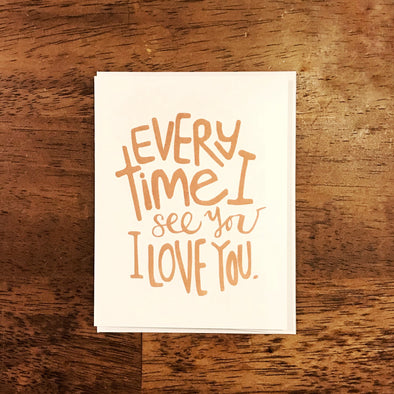 EVERY
time I
see you
I LOVE YOU.